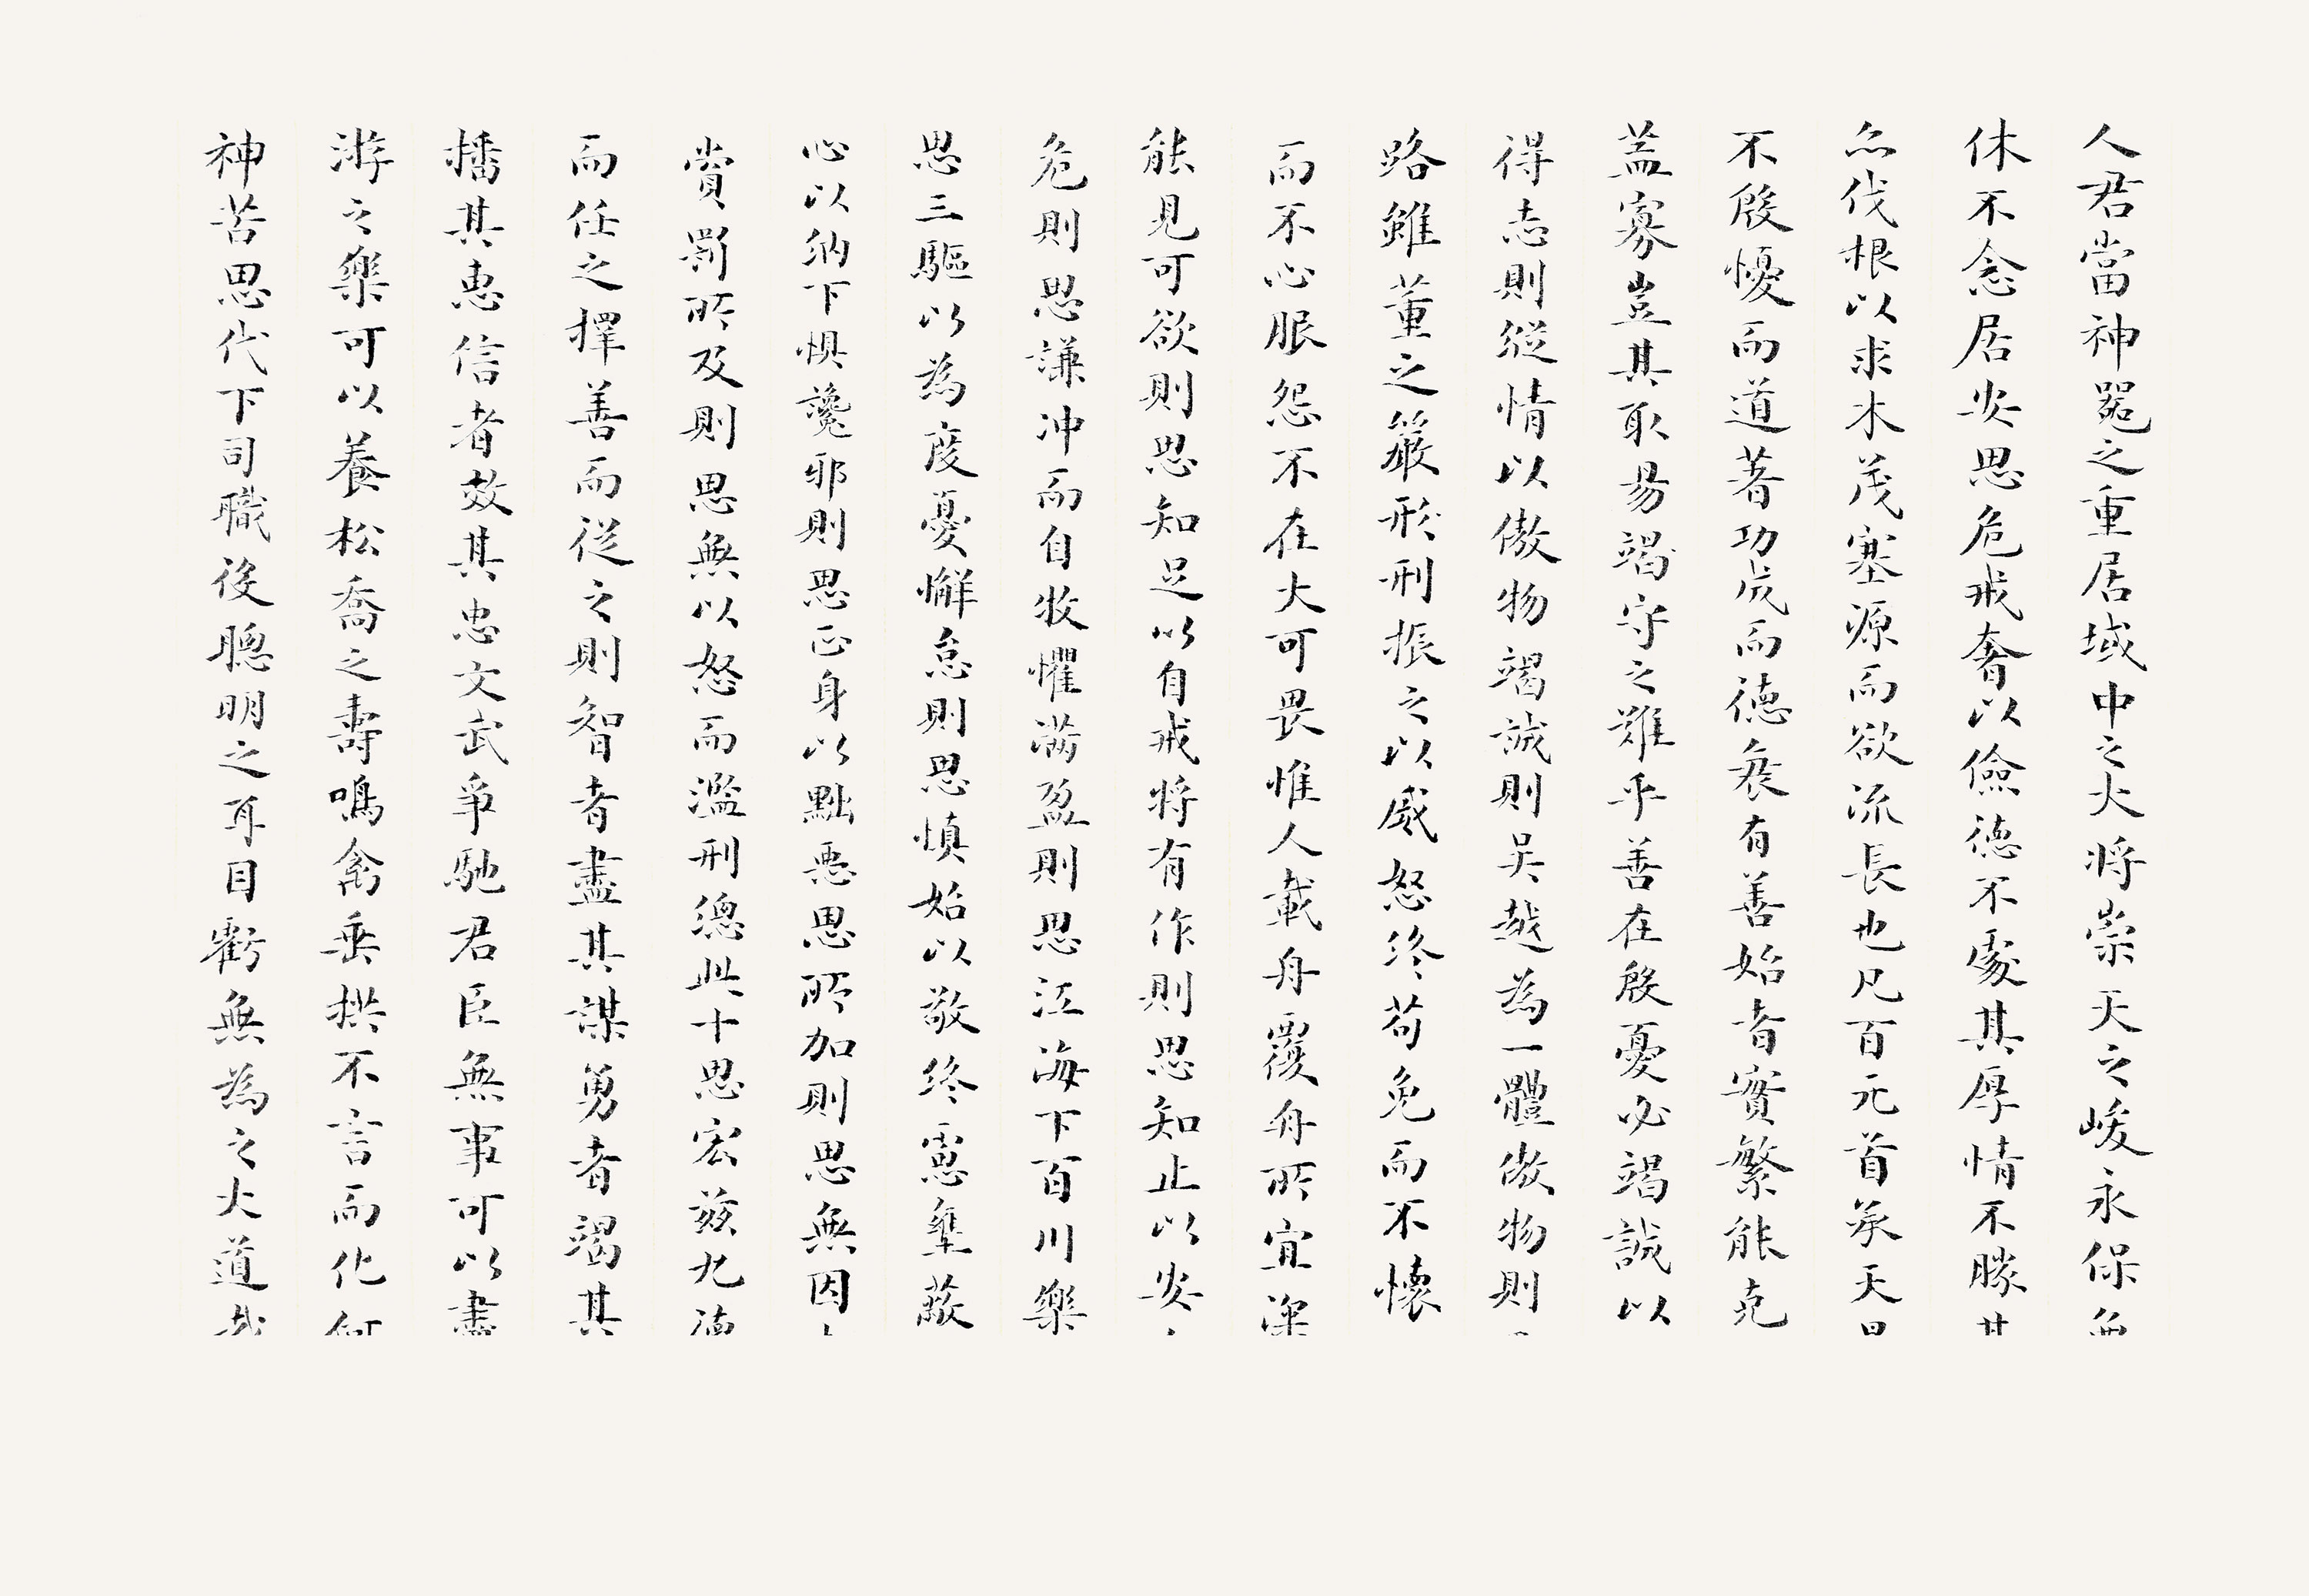 人君當神器之重居域中之大將崇天之峻永保無
休不念居安思危戒奢以儉德不處其厚情不勝其
亦伐根以求木茂塞源而欲流長也凡百元首承天景
不殷憂而道著功成而德衰有善始者實繁能克
蓋寡豈其取易竭守之難乎善在殷憂必竭誠以
得志則縱情以傲物竭誠則吴越為一體傲物則
路雖董之嚴形刑振之以威怒終苟免而不懷
而不心服怨不在大可畏惟人載舟覆舟所宜深
能見可欲則思知足以自戒將有作則思知止以安
危則思謙冲而自牧懼滿盈則思江海下百川樂
思三驅以為度憂懈怠則思慎始以敬終慮壅蔽
心以納下懼讒邪則思正身以黜惡思所加則思無因
賞罰所及則思無以怒而濫刑總此十思宏兹九德
而任之擇善而從之則智者盡其謀勇者竭其
播其惠信者效其忠文武爭馳君臣無事可以盡
游之樂可以養松喬之壽鳴禽垂拱不言而化何
神苦思代下司職後聰明之耳目虧無為之大道哉